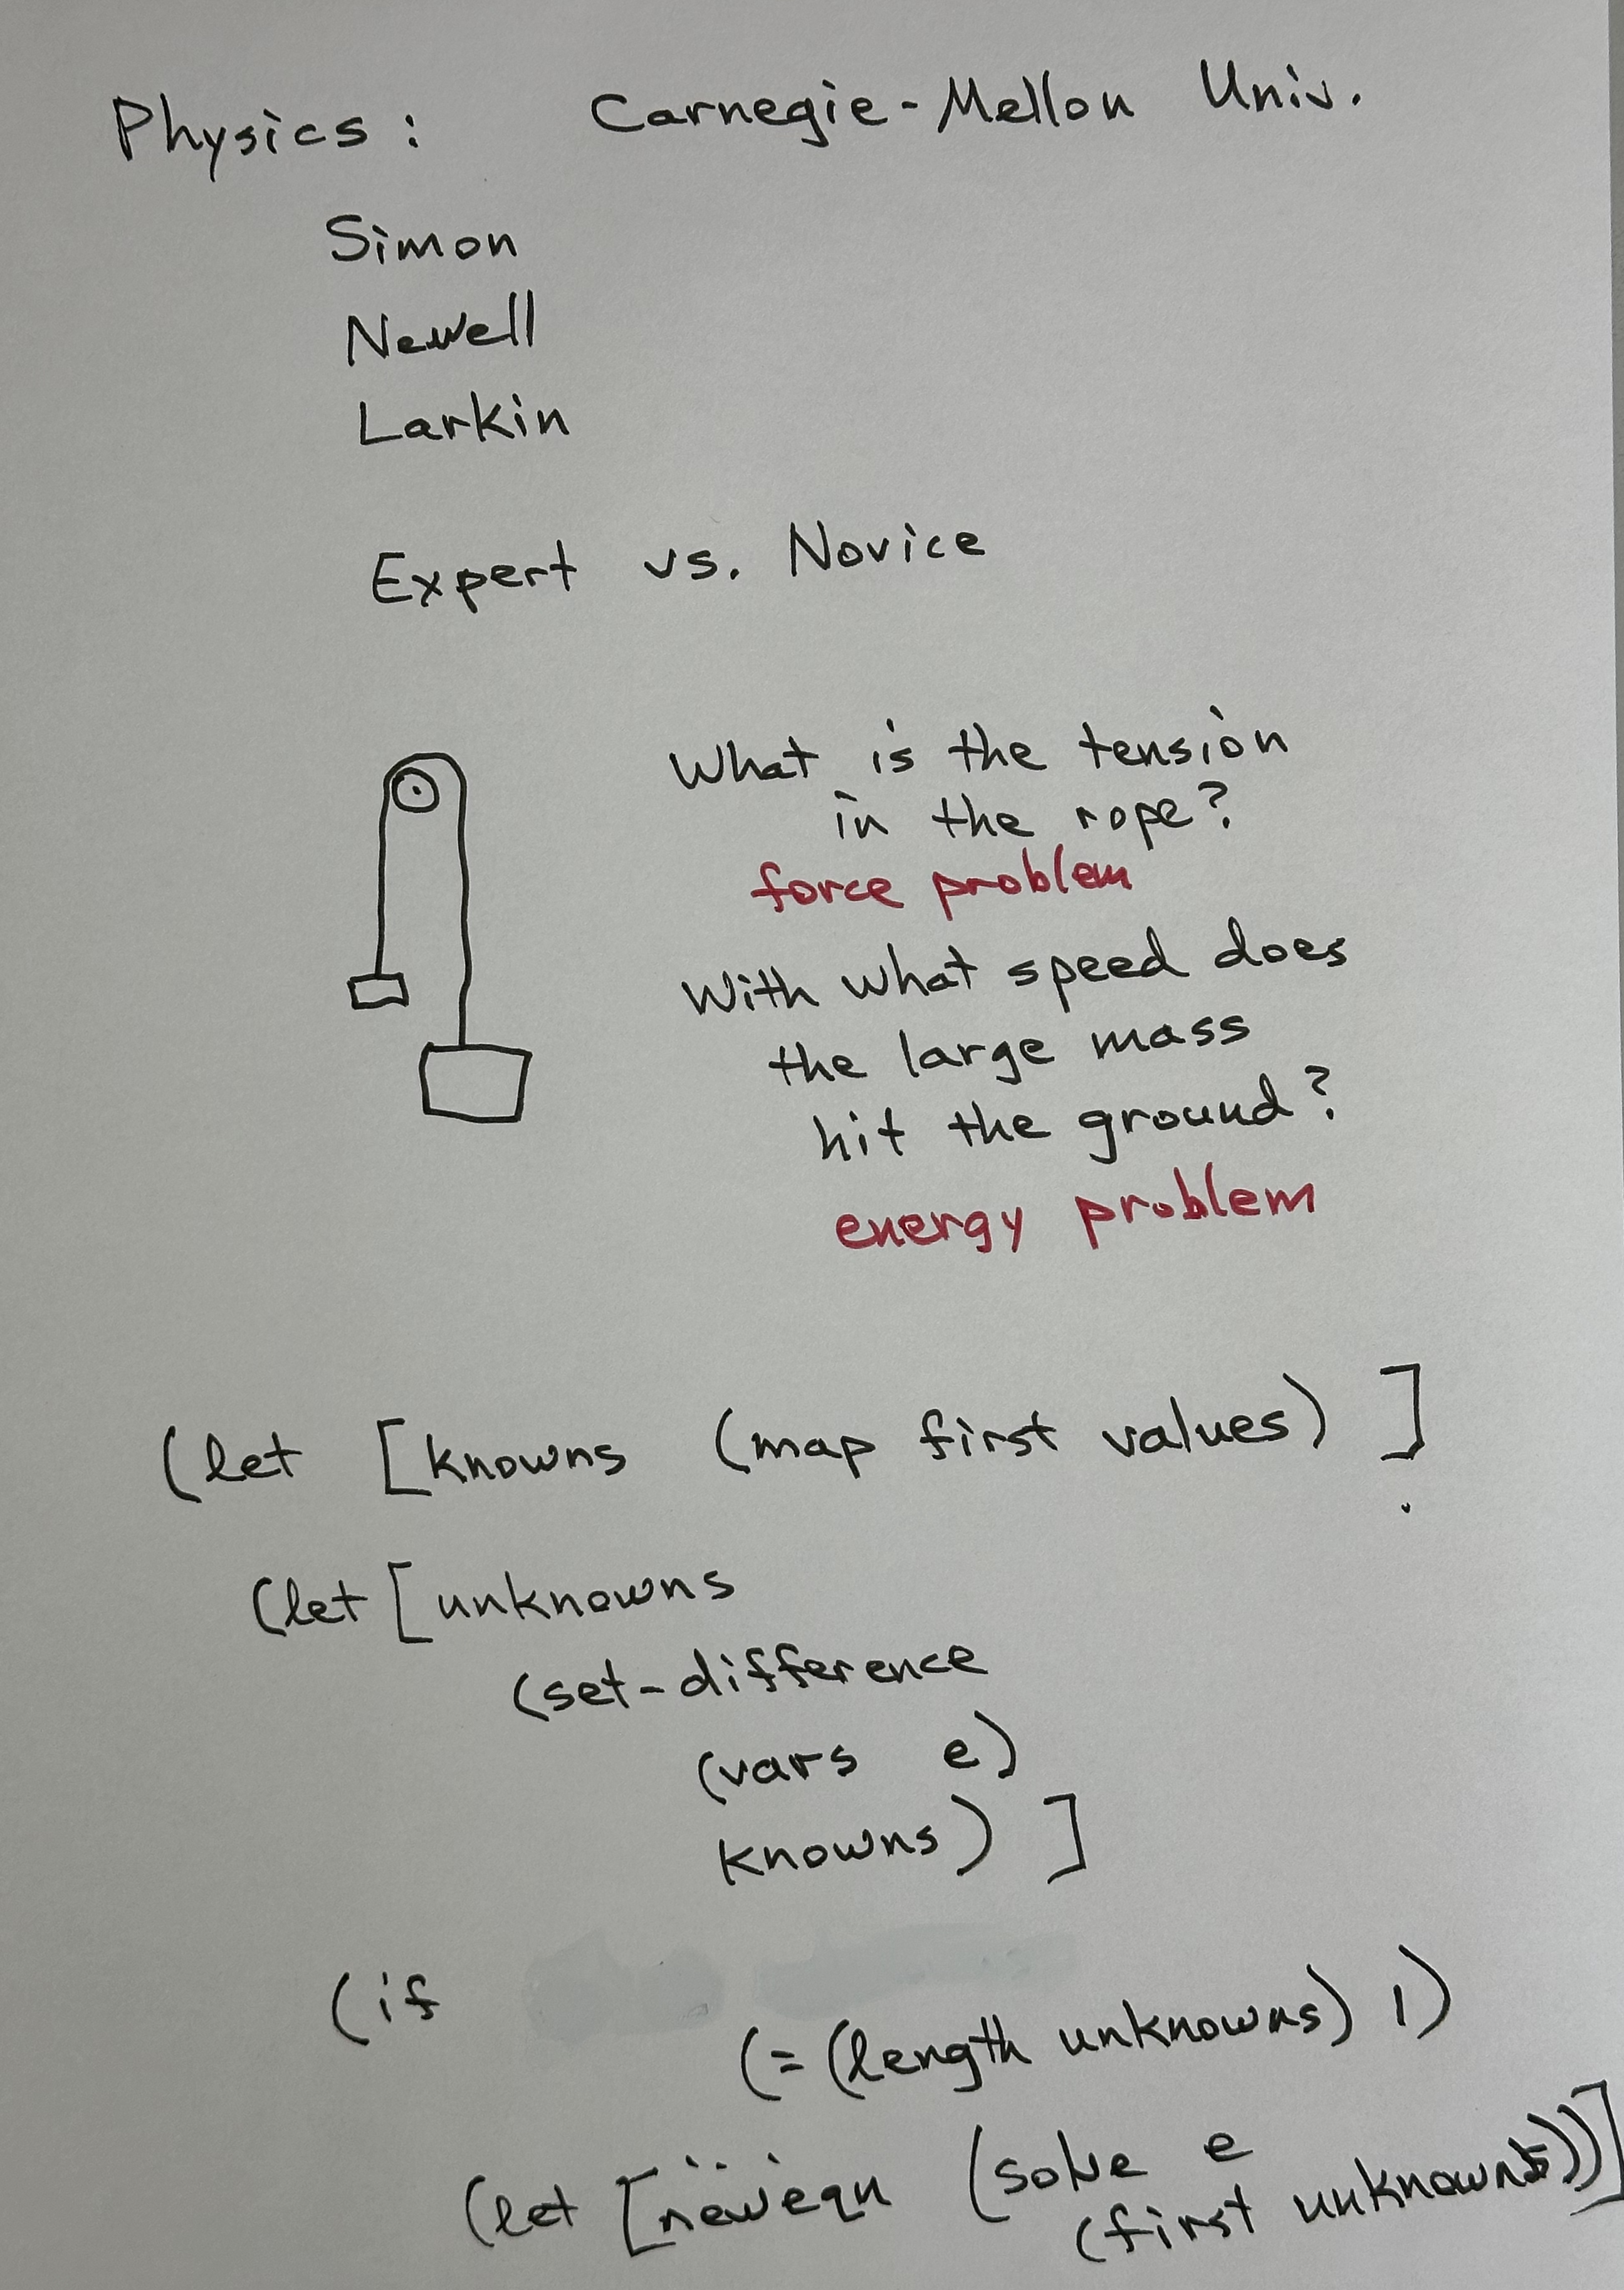 Physics: Carnegie-Mellon Univ.
Simon
Newell
Larkin
Expert vs. Novice
What is the tension
in the rope?
force problem
With what speed does
the large mass
hit the ground?
energy problem
(let [knowns (map first values) ]
(let [unknowns
(set-difference
(vars e)
knowns) ]
(if
(= (length unknowns) 1)
(let [newequ (solve e
(first unknowns))]